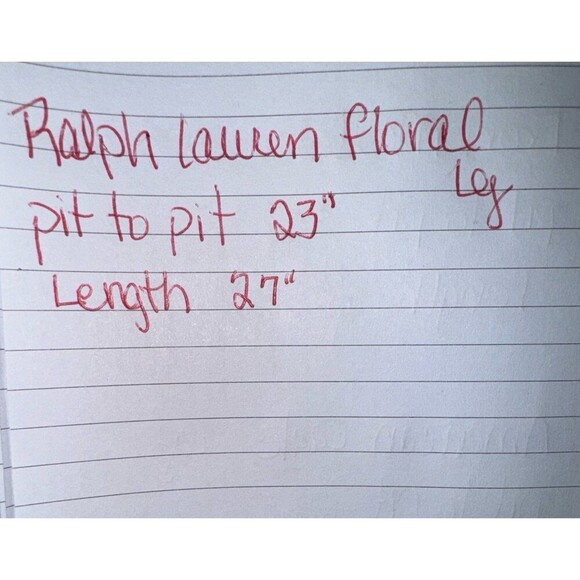 Ralph Lauren floral
Lg
pit to pit 23"
Length 27"